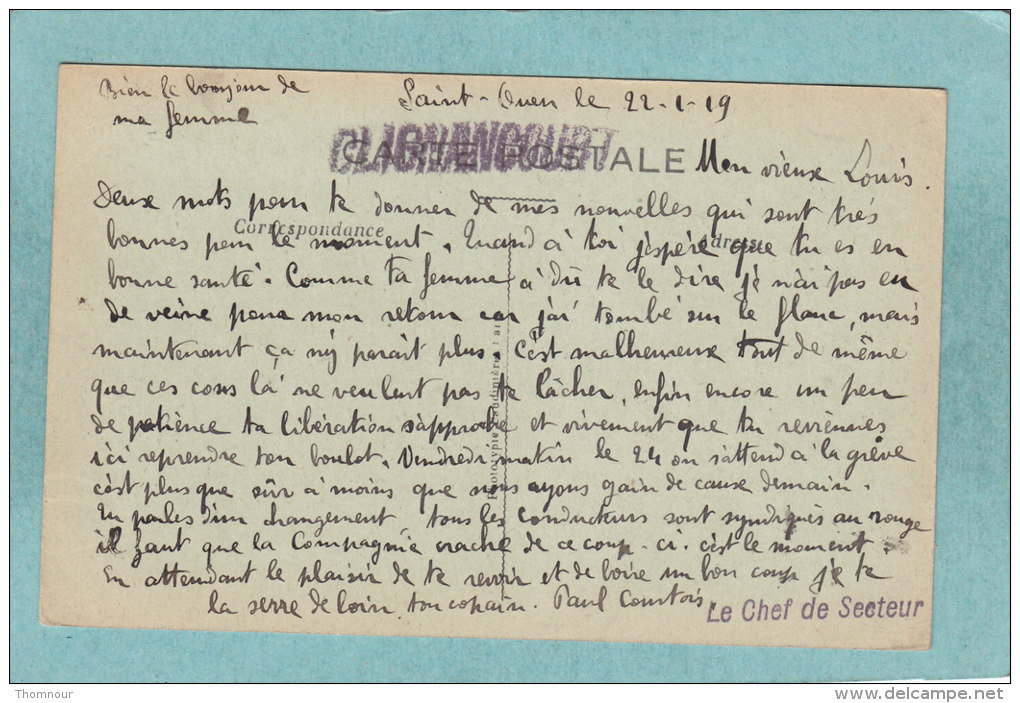 Bien le bonjour de
ma femme
Saint-Ouen le 22-1-19
CLIGNANCOURT
CARTE POSTALE
Mon vieux Louis.
Deux mots pour te donner de mes nouvelles qui sont très
Correspondance
Adresse
bonnes pour le moment. Quand à toi j'espère que tu es en
bonne santé. Comme ta femme à dû te le dire je n'ai pas eu
de veine pour mon retour car j'ai tombé sur le flanc, mais
maintenant ça n'y parait plus. C'est malheureux tout de même
que ces cons là ne veulent pas te lâcher, enfin encore un peu
de patience ta libération s'approche et vivement que tu reviennes
ici reprendre ton boulot. Vendredi matin le 24 on s'attend à la grève
c'est plus que sûr à moins que nous ayons gain de cause demain.
Tu parles d'un changement tous les conducteurs sont syndiqués au rouge
il faut que la Compagnie crache de ce coup-ci c'est le moment.
En attendant le plaisir de te revoir et de boire un bon coup je te
la serre de loin ton copain. Paul Courtois.
Le Chef de Secteur
Thomnour
delcampe.net